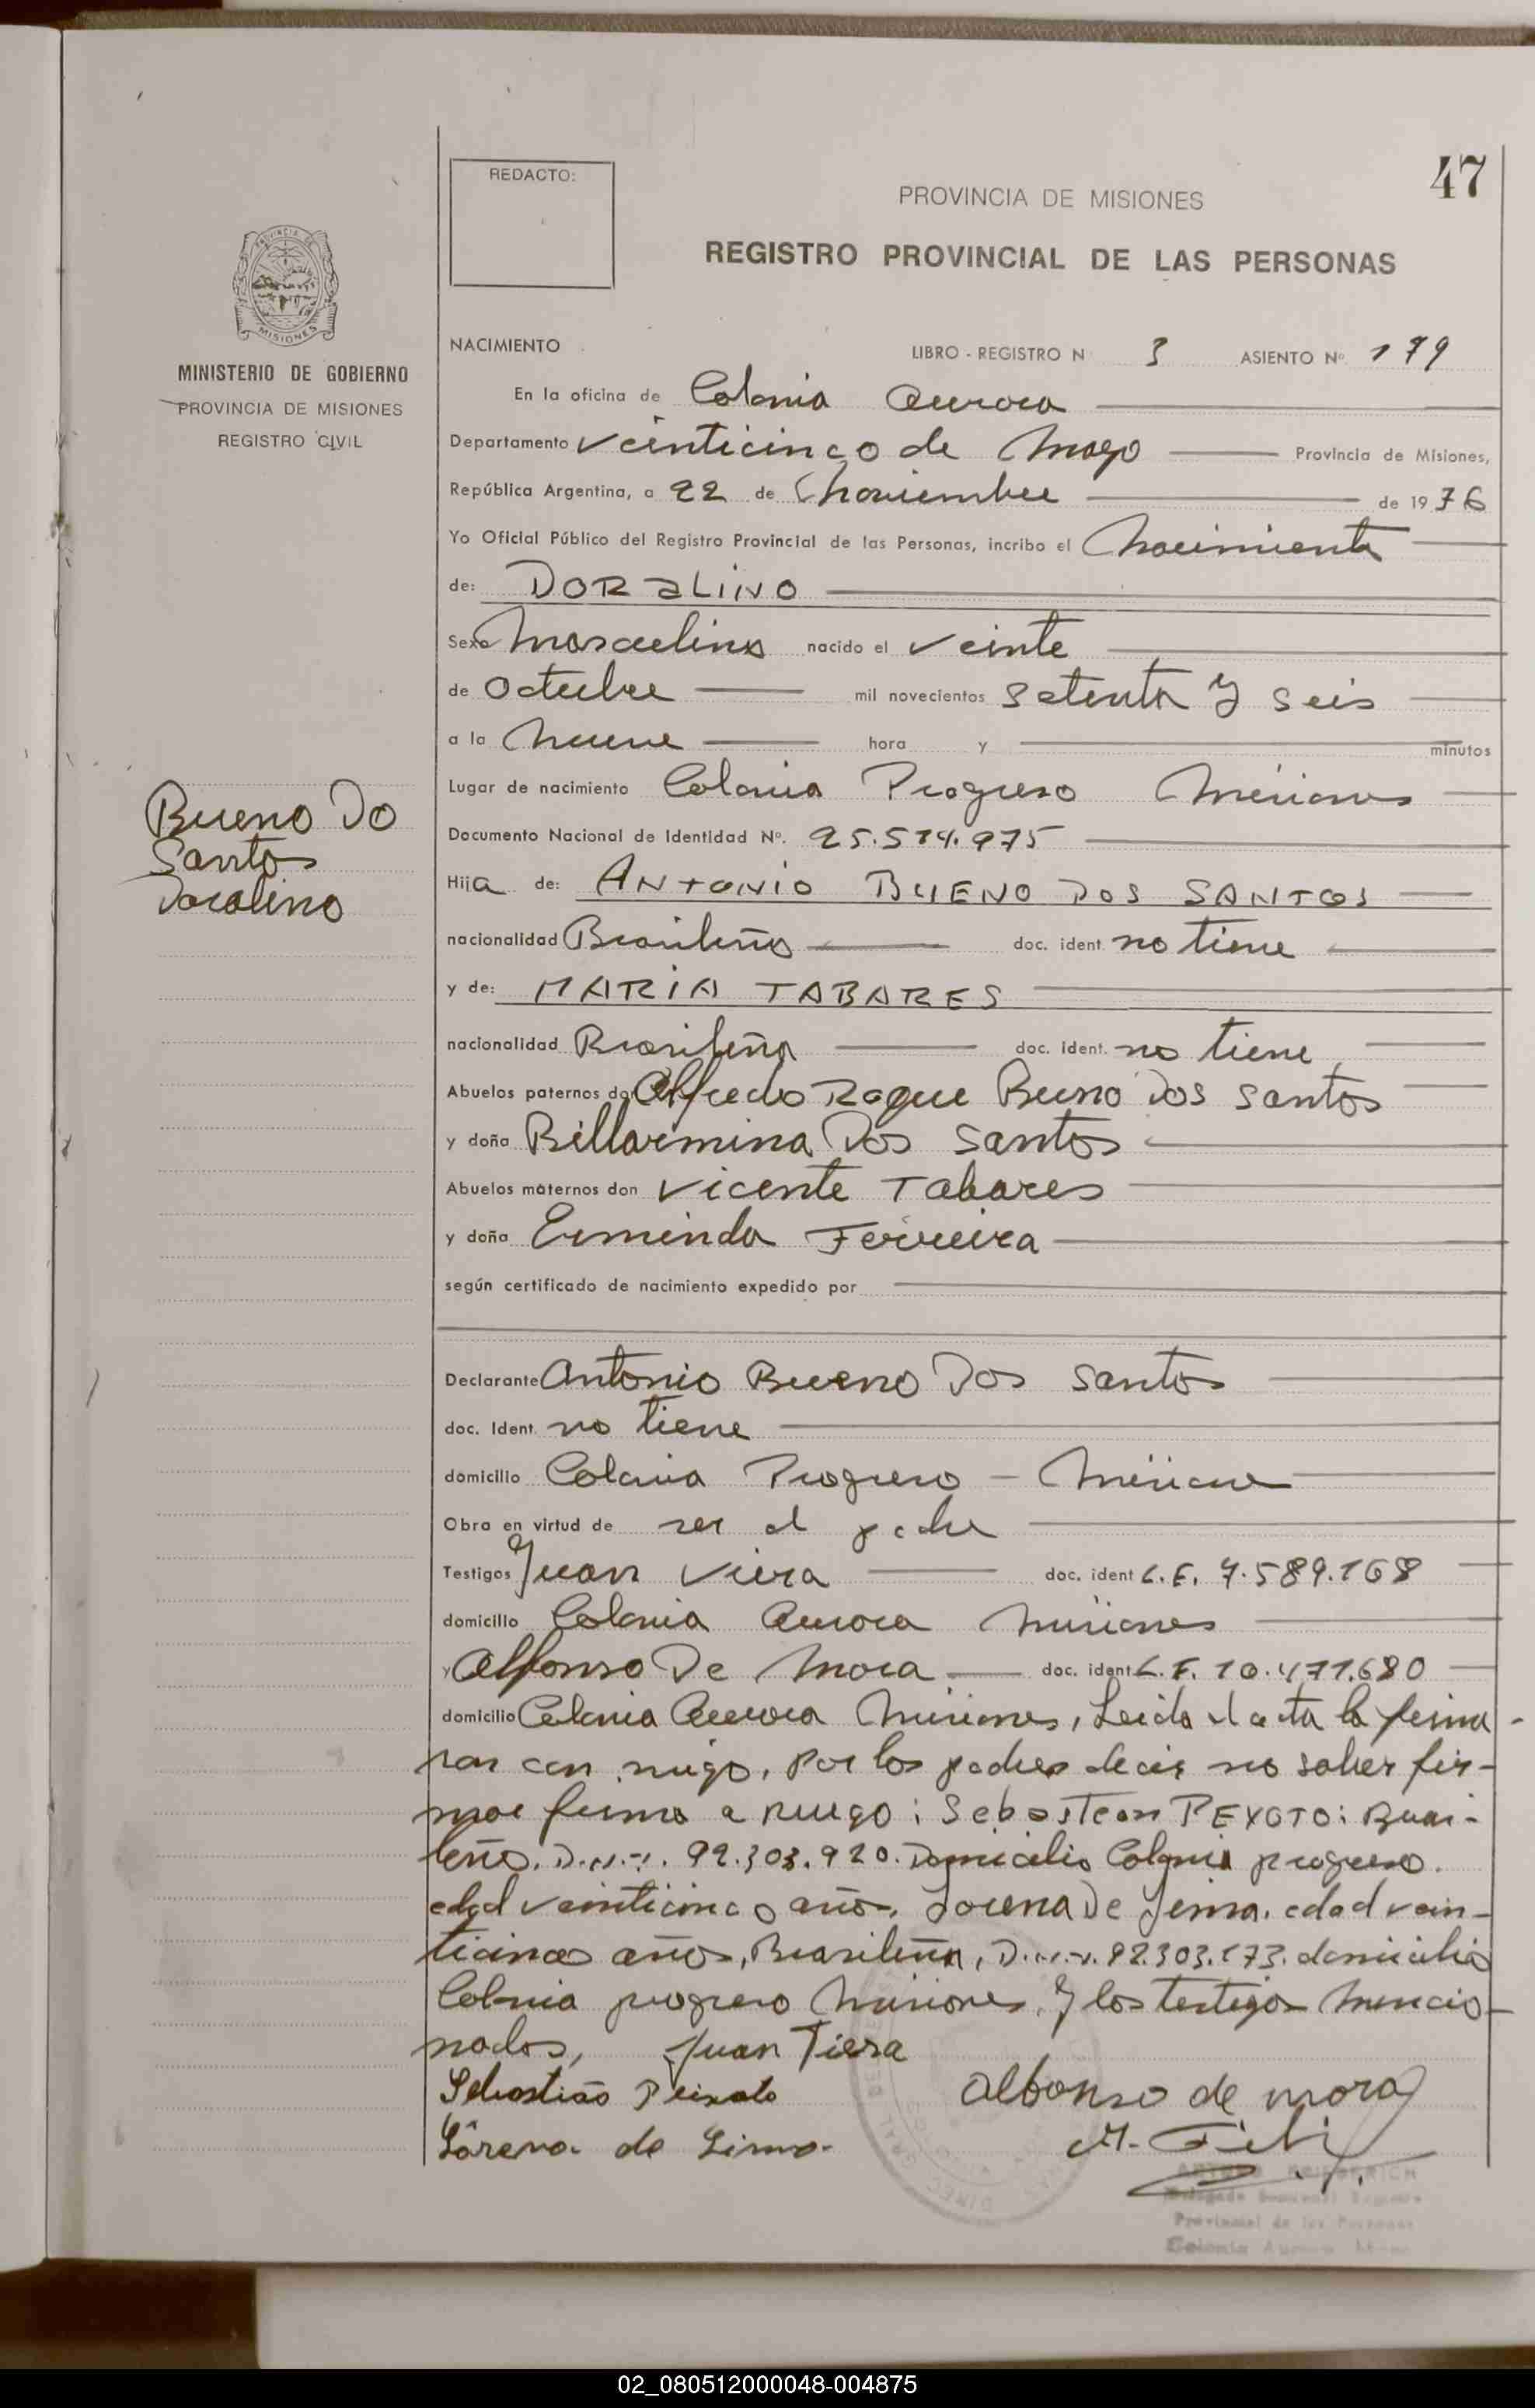 47
REDACTO:
PROVINCIA DE MISIONES
REGISTRO PROVINCIAL DE LAS PERSONAS
PROVINCIA DE
MISIONES
MINISTERIO DE GOBIERNO
PROVINCIA DE MISIONES
REGISTRO CIVIL
NACIMIENTO LIBRO - REGISTRO N 3 ASIENTO Nº 179
En la oficina de Colonia Aurora
Departamento veinticinco de Mayo Provincia de Misiones,
República Argentina, a 22 de Noviembre de 1976
Yo Oficial Público del Registro Provincial de las Personas, incribo el Nacimiento
de: DORALINO
Sexo Masculino nacido el veinte
de Octubre mil novecientos setenta y seis
a la Nueve hora y minutos
Lugar de nacimiento Colonia Progreso Misiones
Documento Nacional de Identidad Nº. 25.574.975
Bueno Do
Santos
Doralino
Hija de: ANTONIO BUENO DOS SANTOS
nacionalidad Brasileño doc. ident. no tiene
y de: MARIA TABARES
nacionalidad Brasileña doc. ident. no tiene
Abuelos paternos don Alfredo Roque Bueno Dos Santos
y doña Billarmina Dos Santos
Abuelos maternos don Vicente Tabares
y doña Erminda Ferreira
según certificado de nacimiento expedido por
Declarante Antonio Bueno Dos Santos
doc. Ident. no tiene
domicilio Colonia Progreso - Misiones
Obra en virtud de ser el padre
Testigos Juan Viera doc. ident L.E. 7.589.168
domicilio Colonia Aurora Misiones
y Alfonso De Mora doc. ident L.E. 10.471.680
domicilio Colonia Aurora Misiones, Leida el acta la firma-
ron con migo, Por los padres decir no saber fir-
mar firma a ruego: Sebastean PEXOTO: Brasi-
leño. D.N.I. 92.303.920. Domicilio Colonia progreso.
edad veinticinco años. Lorena De Lima. edad vein-
ticinco años, Brasileña, D.N.I. 92.303.173. domicilio
Colonia progreso Misiones, y los testigos mencio-
nados, Juan Viera
Sebastião Peixoto Albonso de mora
Lôrena de Lima.
Provincial de las Personas
Colonia Aurora
02_080512000048-004875